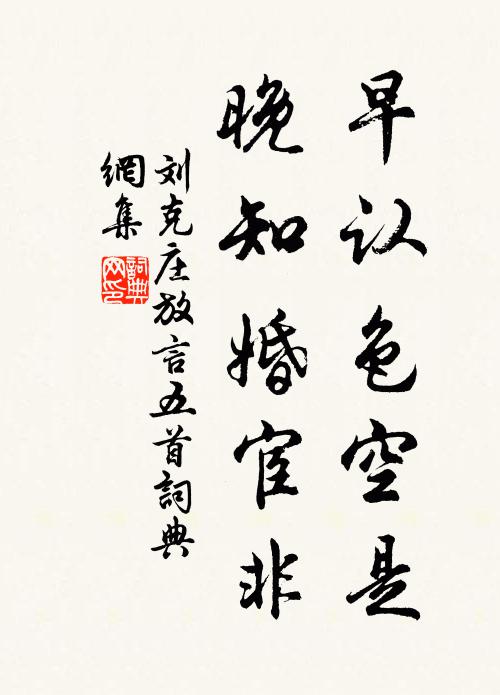 早认色空是
晚知婚宦非
刘克庄放言五首詞典
網集
詞典
网印